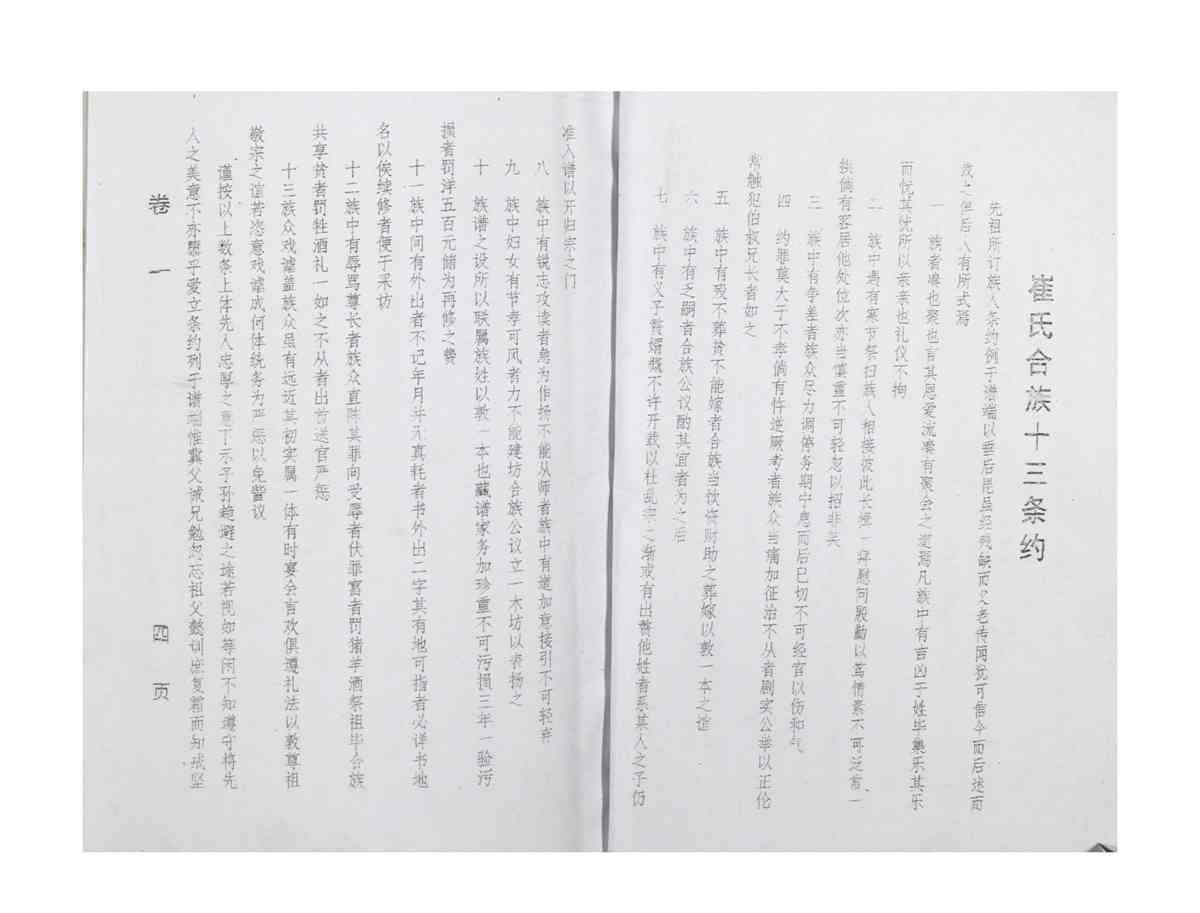 崔氏合族十三条约
先祖所订族人条约例于谱端以垂后昆虽经残缺而父老传闻犹可信今而后述而
茂之俾后人有所式焉
一 族者凑也聚也言其恩爱流凑有聚会之道焉凡族中有吉凶子姓毕集乐其乐
而忧其忧所以亲亲也礼仪不拘
二 族中遇有寒节祭扫族人相接彼此长揖一拜慰问殷勤以笃情素不可泛常一
挨倘有客居他处位次亦当慎重不可轻忽以招非笑
三 族中有争差者族众尽力调停务期中息而后已切不可经官以伤和气
四 约罪莫大于不孝倘有忤逆厥考者族众当痛加征治不从者剧实公举以正伦
常触犯伯叔兄长者如之
五 族中有殁不葬贫不能嫁者合族当饮资财助之葬嫁以敦一本之谊
六 族中有乏嗣者合族公议酌其宜者为之后
七 族中有义子赘婿慨不许开载以杜乱宗之渐或有出赘他姓者系某人之子仍
准入谱以开归宗之门
八 族中有锐志攻读者急为作扬不能从师者族中有道加意接引不可轻弃
九 族中妇女有节孝可风者力不能建坊合族公议立一木坊以表扬之
十 族谱之设所以联属族姓以敦一本也藏谱家务加珍重不可污损三年一验污
损者罚洋五百元储为再修之费
十一族中间有外出者不记年月并无真耗者书外出二字其有地可指者必详书地
名以俟续修者便于采访
十二族中有辱骂尊长者族众直陈其罪向受辱者伏罪富者罚猪羊酒祭祖毕合族
共享贫者罚牲酒礼一如之不从者出首送官严惩
十三族众戏谑盖族众虽有远近其初实属一体有时宴会言欢俱遵礼法以敦尊祖
敬宗之谊若恣意戏谑成何体统务为严惩以免訾议
谨按以上数条上体先人忠厚之意下示子孙趋避之途若视如等闲不知遵守将先
人之美意不亦隳乎爰立条约列于谱端惟冀父诫兄勉忽忘祖父懿训庶复霜而知戒坚
卷一 四页